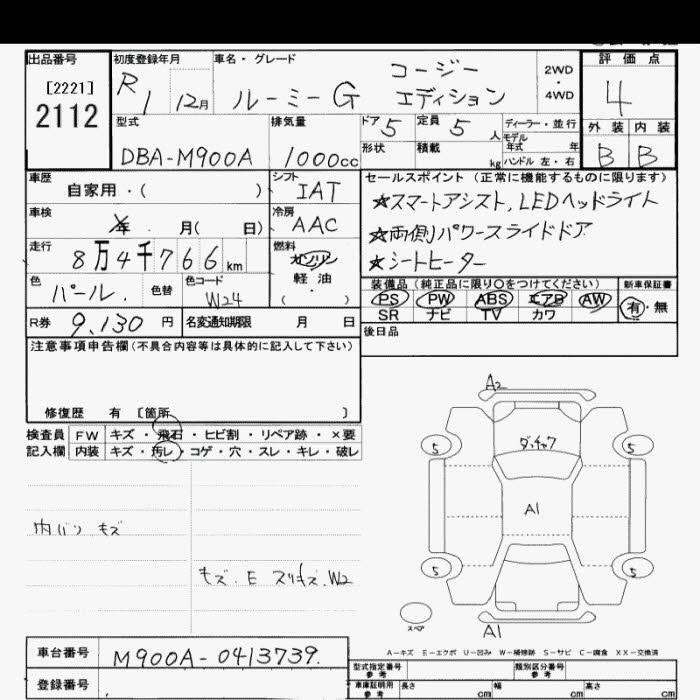 出品番号 初度登録年月 車名・グレード 2WD・4WD 評価点
[2221]
2112
R1 12月
ルーミーG コージーエディション
4
型式 排気量 ドア 5 定員 5人 ディーラー・並行
モデル年式 年
外装 内装
DBA-M900A 1000cc 形状 積載 kg ハンドル 左・右
B B
車歴 自家用・( ) シフト IAT
セールスポイント(正常に機能するものに限ります)
☆スマートアシスト, LEDヘッドライト
車検 年 月( 日) 冷房 AAC
☆両側パワースライドドア
走行 8万4千766km 燃料 ガソリン 軽油 ・( )
☆シートヒーター
色 パール. 色替 色コード W24
装備品(純正品に限り○をつけてください) 新車保証書
PS PW ABS エアB AW 有・無
SR ナビ TV カワ
R券 9,130円 名変通知期限 月 日
後日品
注意事項申告欄(不具合内容等は具体的に記入して下さい)
修復歴 有 〔箇所 〕
検査員 FW キズ・飛石・ヒビ割・リペア跡・×要
記入欄 内装 キズ・汚レ・コゲ・穴・スレ・キレ・破レ
内バン キズ
キズ.E スリキズ.W2
A2
ダッチャク
5 5
A1
5 5
スペア
A1
A-キズ E-エクボ U-凹み W-補修跡 S-サビ C-腐食 XX-交換済
車台番号 M900A-0413739.
登録番号
型式指定番号 参考 類別区分番号 参考
車庫証明用 参考 長さ cm 幅 cm 高さ cm